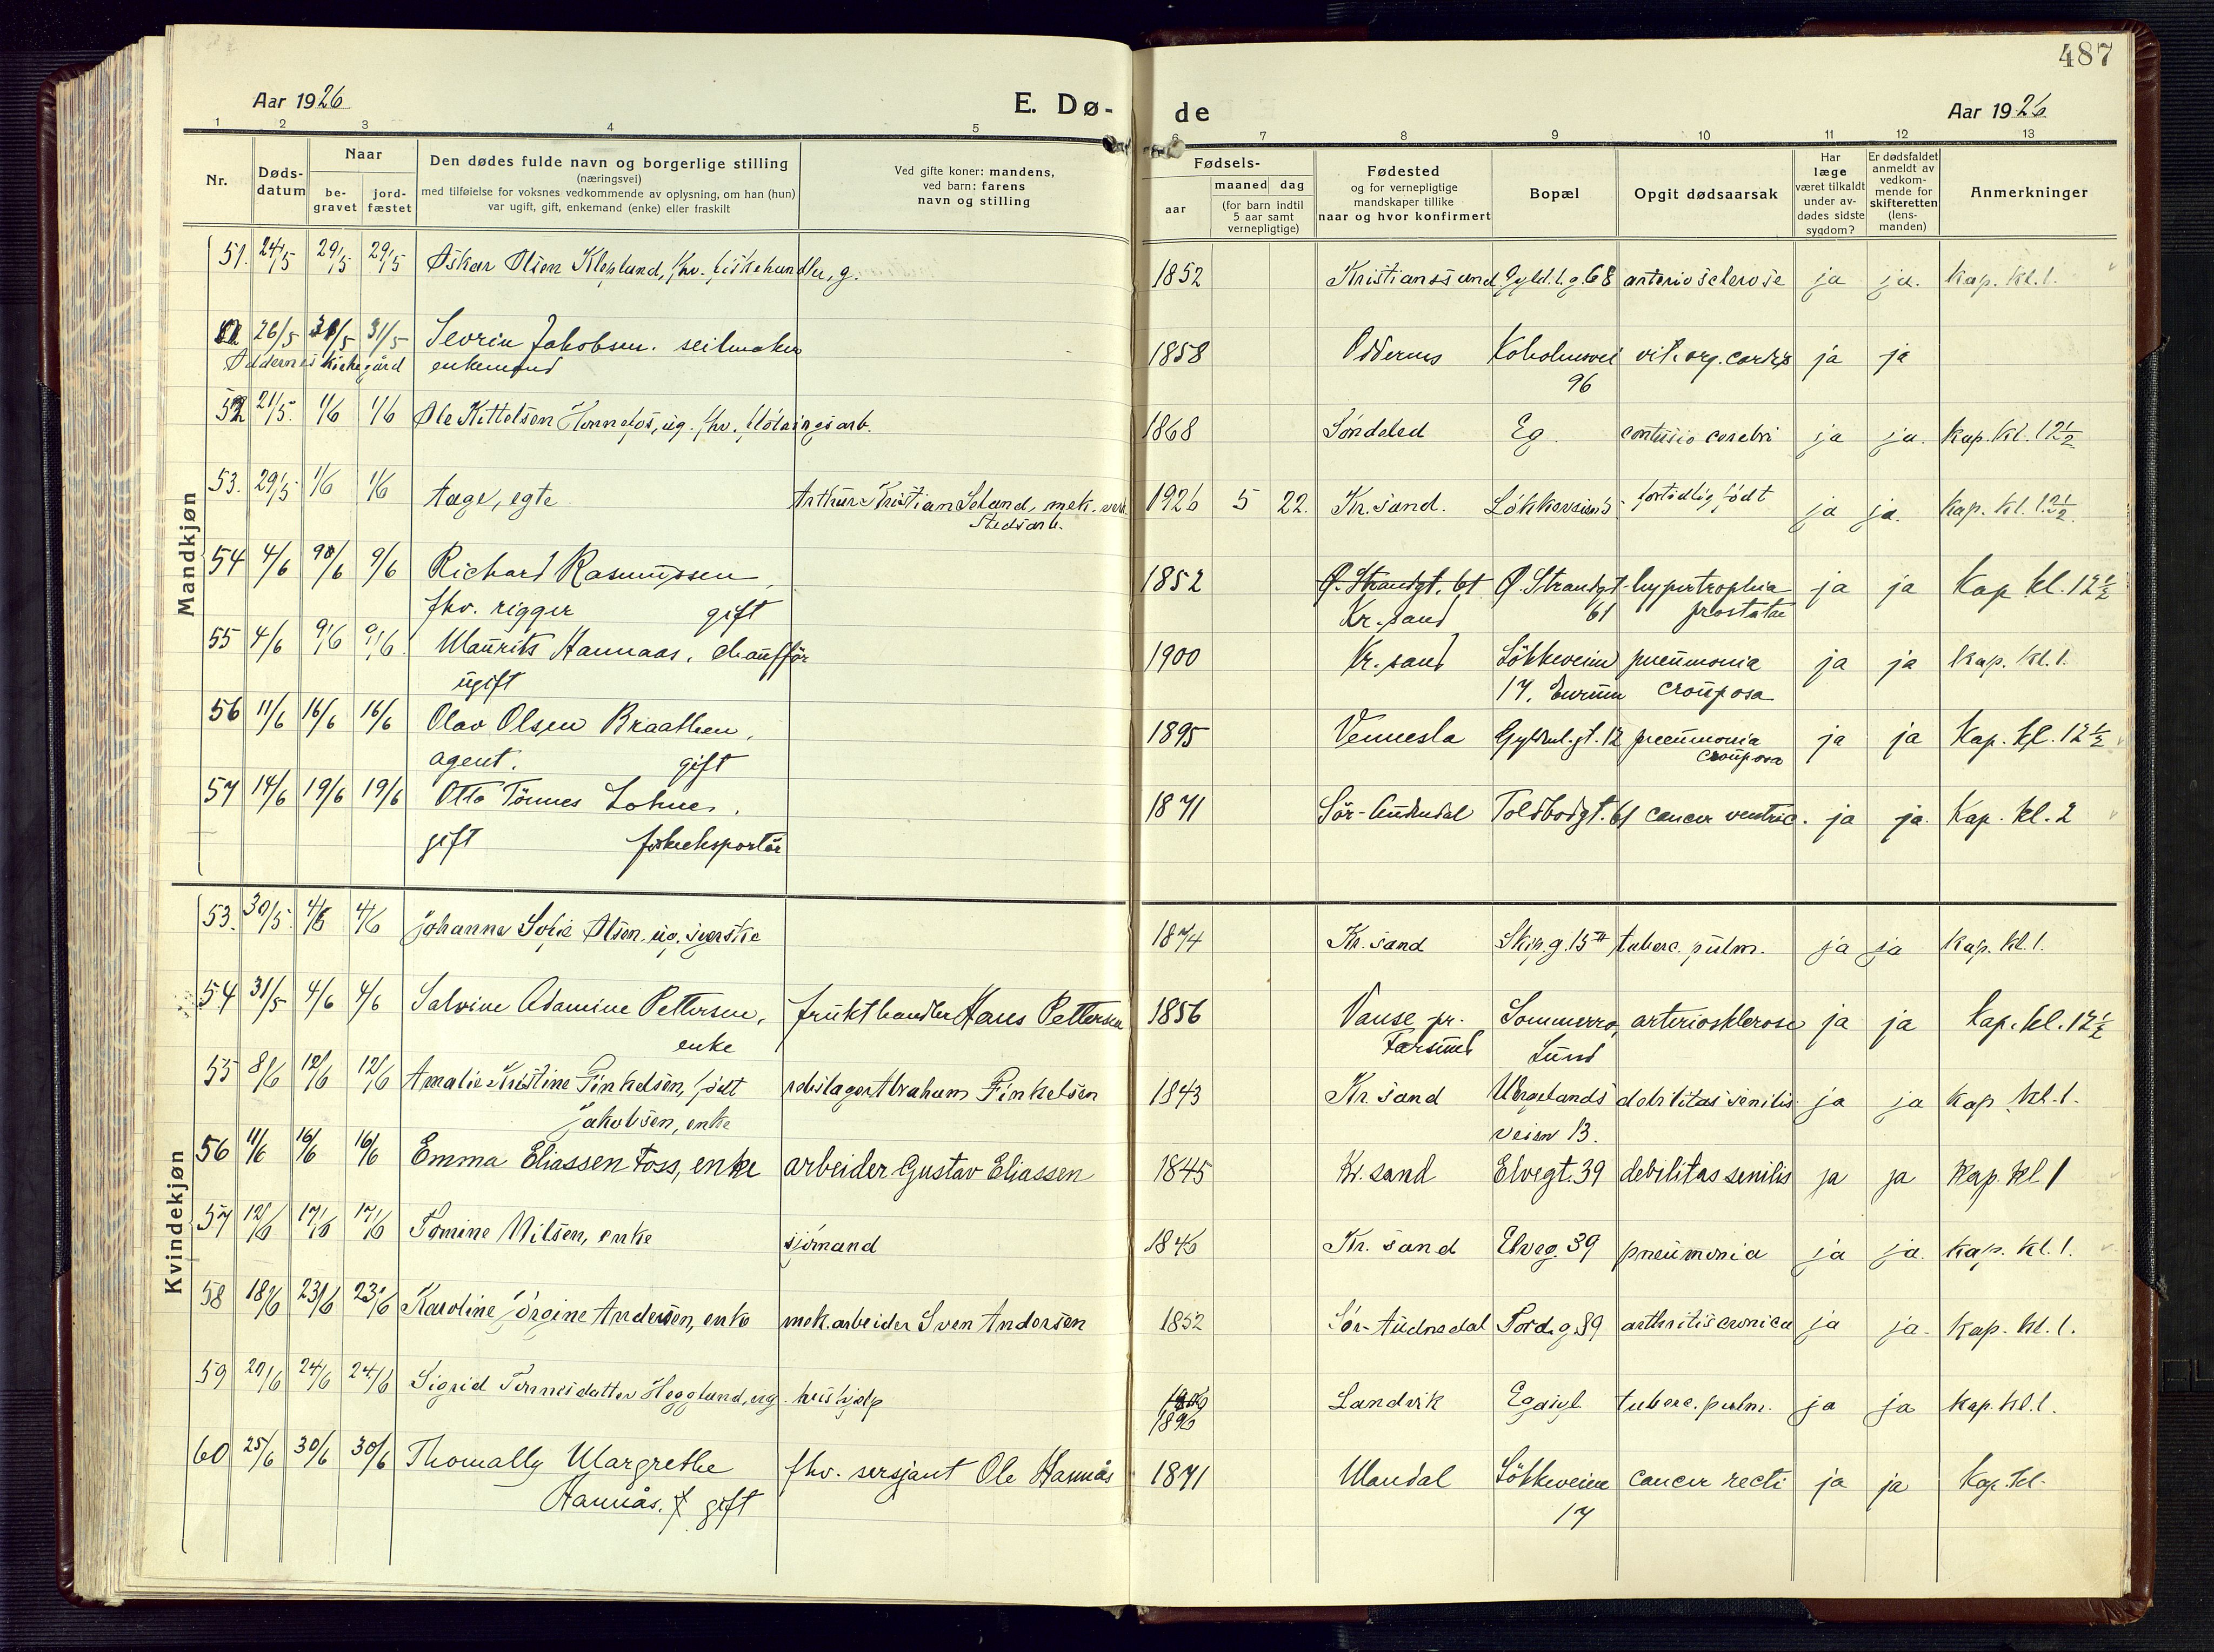 487
Aar 1926
E. Dø-
de
Aar 1926
1 2 3 4 5 6 7 8 9 10 11 12 13
Nr.
Døds-
datum
Naar
be-
gravet
jord-
fæstet
Den dødes fulde navn og borgerlige stilling
(næringsvei)
med tilføielse for voksnes vedkommende av oplysning, om han (hun)
var ugift, gift, enkemand (enke) eller fraskilt
Ved gifte koner: mandens,
ved barn: farens
navn og stilling
Fødsels-
aar
maaned dag
(for barn indtil
5 aar samt
vernepligtige)
Fødested
og for vernepligtige
mandskaper tillike
naar og hvor konfirmert
Bopæl
Opgit dødsaarsak
Har
læge
været tilkaldt
under av-
dødes sidste
sygdom?
Er dødsfaldet
anmeldt av
vedkom-
mende for
skifteretten
(lens-
manden)
Anmerkninger
Mandkjøn
51. 24/5 29/5 29/5 Oskar Olsen Kleplund, fhv. fiskehandler, g. 1852 Kristianssand Gyld.l.g. 68 arteriosclerose ja ja. Kap. kl. 1.
26/5 31/5 31/5 Sevrin Jakobsen. seilmaker 1858 Oddernes Koholmvei vit. org. cordis ja ja
Oddernes kirkegård enkemand 96
52 21/5. 1/6 1/6 Ole Kittelsen ug. fhv. fløtningsarb. 1868 Søndeled Eg. contusio cerebri ja ja. Kap. kl. 12½
53. 29/5 1/6 1/6 Aage, egte Arthur Kristian Seland, mek. verk- 1926 5 22. Kr.sand. Løkkeveien 5 fortidlig født ja ja. Kap. kl. 12½
stedsarb.
54 4/6 9/6 9/6 Richard Rasmussen, 1852 Ø. Strandgt. 61 Ø. Strandgt hypertrophia ja ja Kap kl. 12½
fhv. rigger gift Kr.sand 61 prostatae
55 4/6 9/6 9/6 Maurits Hannaas, chauffør 1900 Kr.sand Løkkeveien pneumonia ja ja Kap. kl. 1.
ugift 17. crouposa
56 11/6 16/6 16/6 Olav Olsen Braathen, 1895 Vennesla Gyldenl.gt. 12 pneumonia ja ja Kap. kl. 12½
agent. gift crouposa
57 14/6 19/6 19/6 Otto Tønnes Lohne. 1871 Sør-Audnedal Toldbodgt. 61 cancer ventric. ja ja. Kap. kl. 2
gift fiskeeksportør
Kvindekjøn
53. 30/5. 4/6 4/6 Johanne Sofie Olsen, ug. syerske 1874 Kr.sand Skip.g. 15II tuberc. pulm. ja ja Kap. kl. 1.
54 31/5 4/6 4/6 Salvine Adamine Pettersen, frukthandler Hans Pettersen 1856 Vanse pr. Sommerro, arteriosklerose ja ja Kap. kl. 12½
enke Farsund Lund
55 8/6 12/6 12/6 Amalie Kristine Finkelsen, født rebslager Abraham Finkelsen 1843 Kr.sand Wergelands debilitas senilis ja ja Kap kl. 1.
Jakobsen, enke veien 13.
56 11/6 16/6 16/6 Emma Eliassen Foss, enke arbeider Gustav Eliassen 1845 Kr.sand Elvegt. 39 debilitas senilis ja ja Kap. kl 1
57 12/6 17/6 17/6 Tomine Nilsen, enke sjømand 1846 Kr. sand Elveg. 39 pneumonia ja ja. Kap. kl. 1.
58 18/6 23/6 23/6 Karoline Jørgine Andersen, enke mek. arbeider Sven Andersen 1852 Sør-Audnedal Tord.g. 39 arthritis cronica ja ja. Kap. kl. 1.
59 20/6 24/6 24/6 Sigrid Tønnesdatter Hegglund, ug. hushjelp 1896 Landvik Eg asyl tuberc. pulm. ja ja Kap. kl. 1.
60 25/6 30/6 30/6 Thomally Margrethe fhv. sersjant Ole Hannås 1871 Mandal Løkkeveien cancer recti ja ja Kap. kl.
Hannås. gift 17